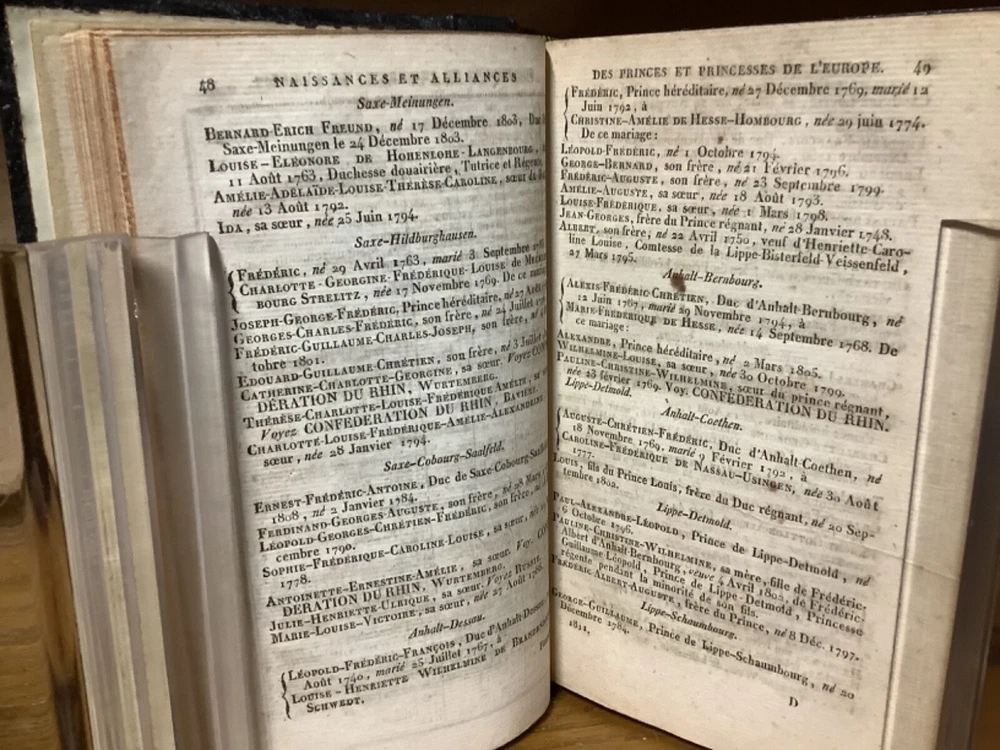 48 NAISSANCES ET ALLIANCES
Saxe-Meinungen.
BERNARD-ERICH FREUND, né 17 Décembre 1803, Duc
Saxe-Meinungen le 24 Décembre 1803.
LOUISE-ELÉONORE DE HOHENLOHE-LANGENBOURG,
11 Août 1763, Duchesse douairière, Tutrice et Régente.
AMÉLIE-ADÉLAÏDE-LOUISE-THÉRÈSE-CAROLINE, sœur du
née 13 Août 1792.
IDA, sa sœur, née 25 Juin 1794.
Saxe-Hildburghausen.
FRÉDÉRIC, né 29 Avril 1763, marié 3 Septembre
CHARLOTTE-GEORGINE-FRÉDÉRIQUE-LOUISE DE
BOURG STRELITZ, née 17 Novembre 1769. De ce mariage
JOSEPH-GEORGE-FRÉDÉRIC, Prince héréditaire, né 27 Août
GEORGES-CHARLES-FRÉDÉRIC, son frère, né 24 Juillet
FRÉDÉRIC-GUILLAUME-CHARLES-JOSEPH, son frère, né
tobre 1801.
EDOUARD-GUILLAUME-CHRÉTIEN, son frère, né 3 Juillet
CATHERINE-CHARLOTTE-GEORGINE, sa sœur. Voyez CON
DÉRATION DU RHIN, WURTEMBERG.
THÉRÈSE-CHARLOTTE-LOUISE-FRÉDÉRIQUE AMÉLIE, sa
Voyez CONFÉDÉRATION DU RHIN, BAVIÈRE.
CHARLOTTE-LOUISE-FRÉDÉRIQUE-AMÉLIE-ALEXANDRINE
sœur, née 28 Janvier 1794.
Saxe-Cobourg-Saalfeld.
ERNEST-FRÉDÉRIC-ANTOINE, Duc de Saxe-Cobourg-Saalfeld
1808, né 2 Janvier 1784.
FERDINAND-GEORGES-AUGUSTE, son frère, né 28 Mars
LÉOPOLD-GEORGES-CHRÉTIEN-FRÉDÉRIC, son frère, né
cembre 1790.
SOPHIE-FRÉDÉRIQUE-CAROLINE-LOUISE, sa sœur, née
1778.
ANTOINETTE-ERNESTINE-AMÉLIE, sa sœur. Voy. CON
DÉRATION DU RHIN, WURTEMBERG.
JULIE-HENRIETTE-ULRIQUE, sa sœur. Voyez RUSSIE.
MARIE-LOUISE-VICTOIRE, sa sœur, née 27 Août 1786
Anhalt-Dessau.
LÉOPOLD-FRÉDÉRIC-FRANÇOIS, Duc d'Anhalt-Dessau
Août 1740, marié 25 Juillet 1767, à
LOUISE-HENRIETTE WILHELMINE DE
SCHWEDT.
DES PRINCES ET PRINCESSES DE L'EUROPE. 49
FRÉDÉRIC, Prince héréditaire, né 27 Décembre 1769, marié 12
Juin 1792, à
CHRISTINE-AMÉLIE DE HESSE-HOMBOURG, née 29 juin 1774.
De ce mariage :
LÉOPOLD-FRÉDÉRIC, né 1 Octobre 1794.
GEORGE-BERNARD, son frère, né 21 Février 1796.
FRÉDÉRIC-AUGUSTE, son frère, né 23 Septembre 1799.
AMÉLIE-AUGUSTE, sa sœur, née 18 Août 1793.
LOUISE-FRÉDÉRIQUE, sa sœur, née 1 Mars 1798.
JEAN-GEORGES, frère du Prince régnant, né 28 Janvier 1748.
ALBERT, son frère, né 22 Avril 1750, veuf d'Henriette-Caro-
line Louise, Comtesse de la Lippe-Bisterfeld-Veissenfeld,
27 Mars 1795.
Anhalt-Bernbourg.
ALEXIS-FRÉDÉRIC-CHRÉTIEN, Duc d'Anhalt-Bernbourg, né
12 Juin 1767, marié 29 Novembre 1794, à
MARIE-FRÉDÉRIQUE DE HESSE, née 14 Septembre 1768. De
ce mariage :
ALEXANDRE, Prince héréditaire, né 2 Mars 1805.
WILHELMINE-LOUISE, sa sœur, née 30 Octobre 1799.
PAULINE-CHRISTINE-WILHELMINE, sœur du prince régnant,
née 23 février 1769. Voy. CONFÉDÉRATION DU RHIN.
Lippe-Detmold.
Anhalt-Coethen.
AUGUSTE-CHRÉTIEN-FRÉDÉRIC, Duc d'Anhalt-Coethen, né
18 Novembre 1769, marié 9 Février 1792, à
CAROLINE-FRÉDÉRIQUE DE NASSAU-USINGEN, née 30 Août
1777.
LOUIS, fils du Prince Louis, frère du Duc régnant, né 20 Sep-
tembre 1802.
Lippe-Detmold.
PAUL-ALEXANDRE-LÉOPOLD, Prince de Lippe-Detmold, né
6 Octobre 1796.
PAULINE-CHRISTINE-WILHELMINE, sa mère, fille de Frédéric-
Albert d'Anhalt-Bernbourg, veuve 4 Avril 1802, de Frédéric-
Guillaume-Léopold, Prince de Lippe-Detmold, Princesse
régente pendant la minorité de son fils.
FRÉDÉRIC-ALBERT-AUGUSTE, frère du Prince, né 8 Déc. 1797.
Lippe-Schaumbourg.
GEORGE-GUILLAUME, Prince de Lippe-Schaumbourg, né 20
Décembre 1784.
1811. D